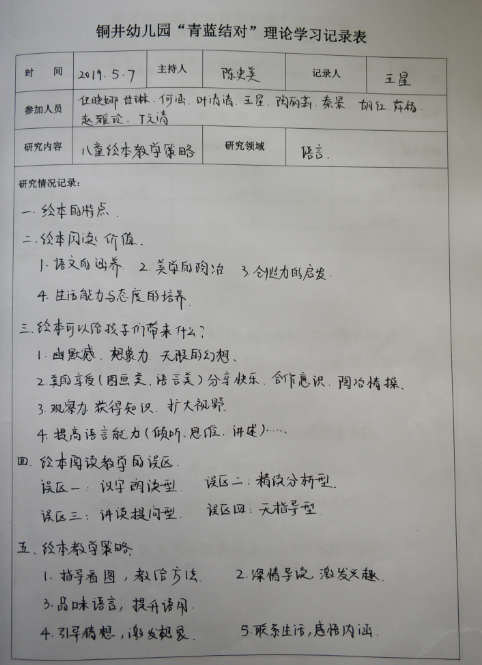 铜井幼儿园“青蓝结对”理论学习记录表
时 间 2019.5.7 主持人 陈 记录人 王星
参加人员 何 叶清清、王星、陶丽 秦 胡红
赵雅 丁文清
研究内容 儿童绘本教学策略 研究领域 语言.
研究情况记录:
一. 绘本的特点.
二. 绘本阅读价值.
1. 语文的涵养 2. 美学的陶冶 3. 创造力的启发.
4. 生活能力与态度的培养.
三. 绘本可以给孩子们带来什么?
1. 幽默感. 想象力 无限的幻想、
2. 美的享受(图画美、语言美)分享快乐、合作意识、陶冶情操.
3. 观察力 获得知识、扩大视野.
4. 提高语言能力(倾听、思维、讲述)……
四. 绘本阅读教学的误区.
误区一:识字朗读型. 误区二:精读分析型.
误区三:讲读提问型. 误区四:无指导型.
五. 绘本教学策略.
1. 指导看图,教给方法. 2. 深情导读,激发兴趣.
3. 品味语言,提升语用.
4. 引导猜想,激发想象. 5. 联系生活,感悟内涵.